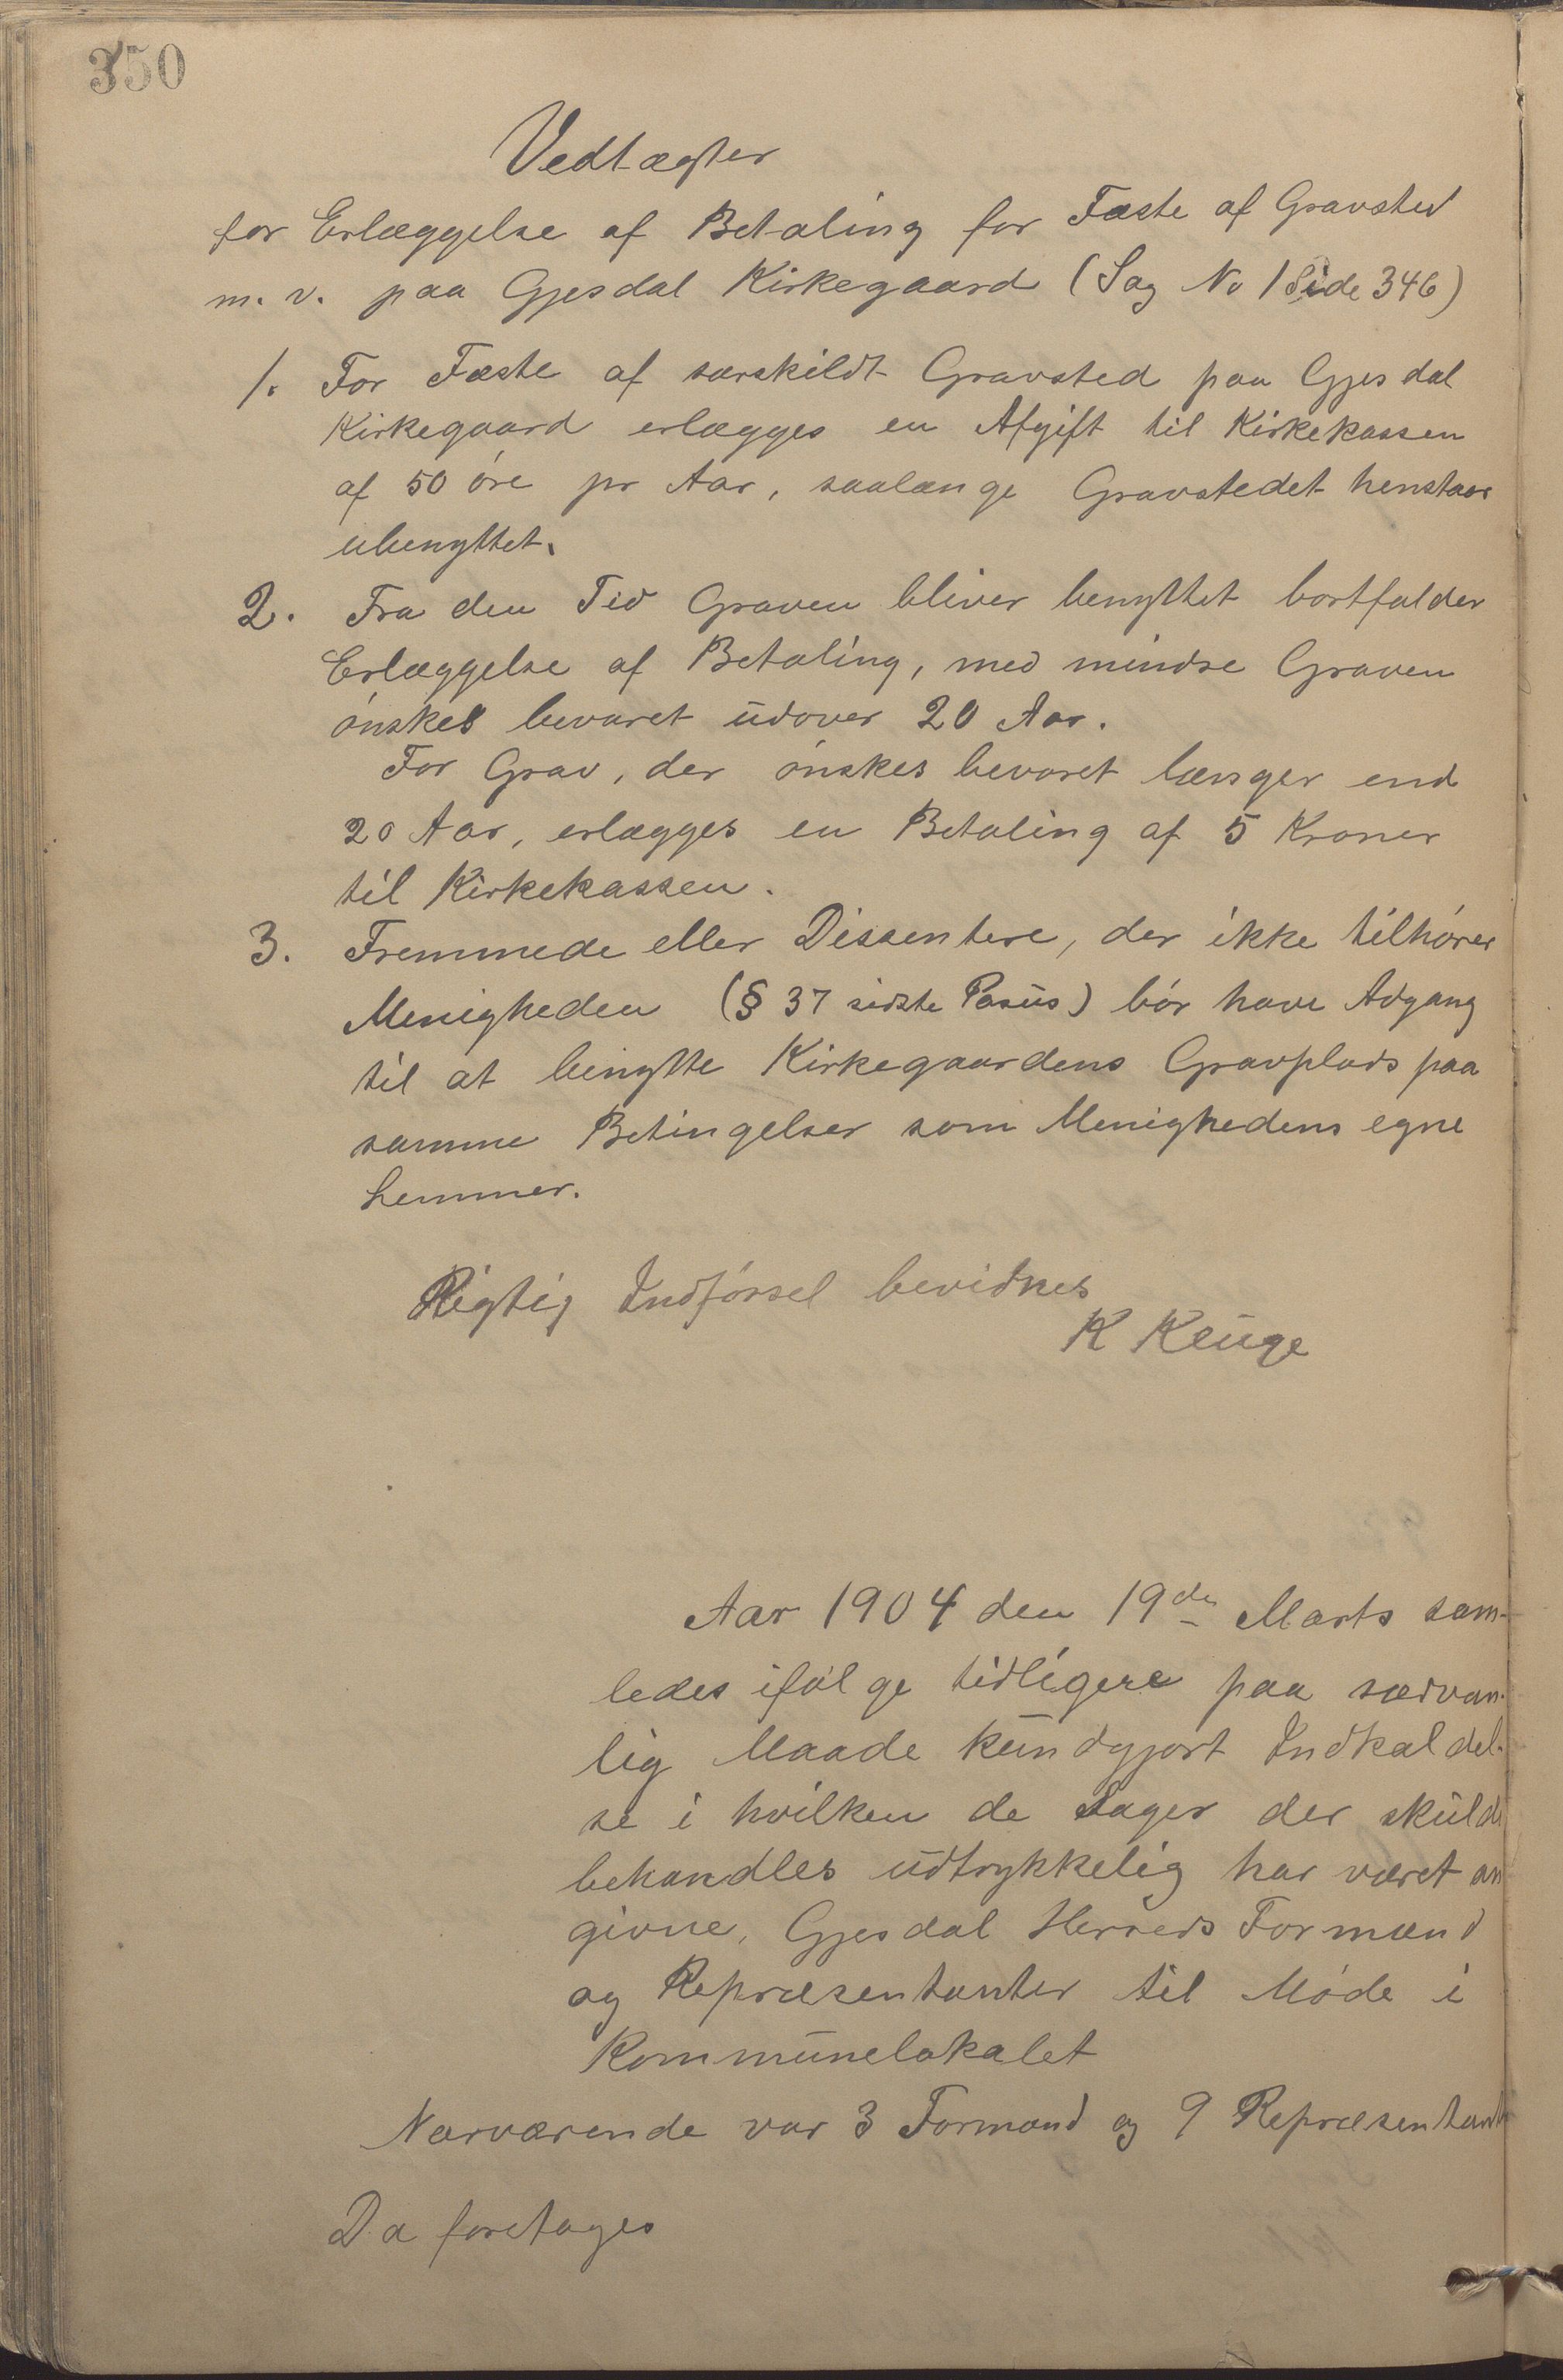 350
Vedtægter
for Erlæggelse af Betaling for Fæste af Gravsted
m. v. paa Gjesdal Kirkegaard (Sag No 1 Side 346)
1. For Fæste af særskildt Gravsted paa Gjesdal
Kirkegaard erlægges en Afgift til Kirkekassen
af 50 øre pr Aar, saalænge Gravstedet henstaar
ubenyttet.
2. Fra den Tid Graven bliver benyttet bortfalder
Erlæggelse af Betaling, med mindre Graven
ønskes bevaret udover 20 Aar.
For Grav, der ønskes bevaret længer end
20 Aar, erlægges en Betaling af 5 Kroner
til Kirkekassen.
3. Fremmede eller Dissentere, der ikke tilhører
Menigheden (§ 37 sidste Pasus) bør have Adgang
til at benytte Kirkegaardens Gravplads paa
samme Betingelser som Menighedens egne
Lemmer.
Rigtig Indførsel bevidnes
K Kluge
Aar 1904 den 19de Marts sam-
ledes ifølge tidligere paa sædvan-
lig Maade kundgjort Indkaldel-
se i hvilken de Sager der skulde
behandles udtrykkelig har været an
givne, Gjesdal Herreds Formænd
og Repræsentanter til Møde i
Kommunelokalet
Nærværende var 3 Formænd og 9 Repræsentant
Da foretages